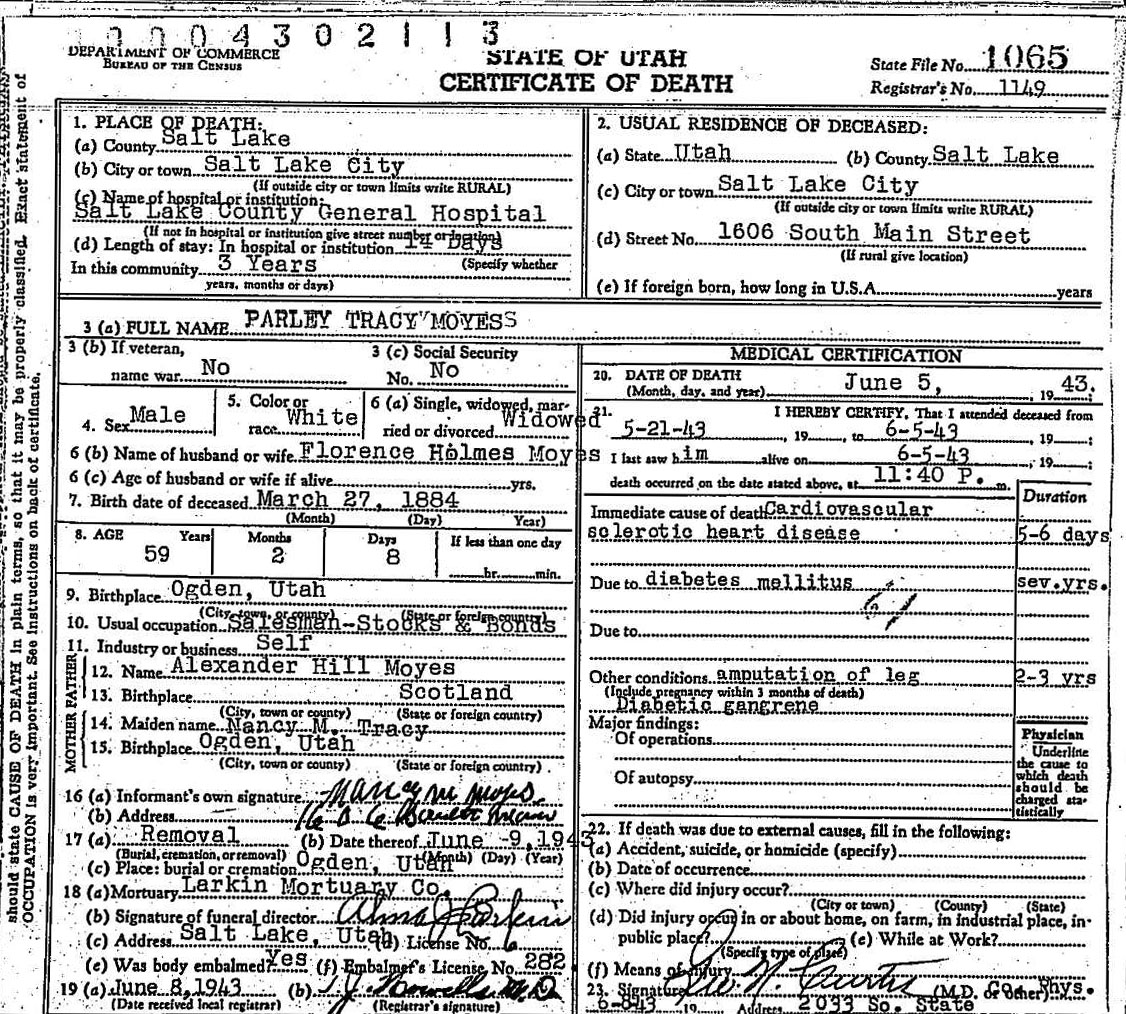 0004302113
DEPARTMENT OF COMMERCE
BUREAU OF THE CENSUS
STATE OF UTAH
CERTIFICATE OF DEATH
State File No. 1065
Registrar's No. 1149
should state CAUSE OF DEATH in plain terms, so that it may be properly classified. Exact statement of
OCCUPATION is very important. See instructions on back of certificate.
1. PLACE OF DEATH:
(a) County Salt Lake
(b) City or town Salt Lake City
(If outside city or town limits write RURAL)
(c) Name of hospital or institution:
Salt Lake County General Hospital
(If not in hospital or institution give street number or location)
(d) Length of stay: In hospital or institution 14 Days
In this community 3 Years (Specify whether
years, months or days)
2. USUAL RESIDENCE OF DECEASED:
(a) State Utah (b) County Salt Lake
(c) City or town Salt Lake City
(If outside city or town limits write RURAL)
(d) Street No. 1606 South Main Street
(If rural give location)
(e) If foreign born, how long in U.S.A. years
3 (a) FULL NAME PARLEY TRACY MOYES
3 (b) If veteran,
name war No
3 (c) Social Security
No. No
4. Sex Male
5. Color or
race White
6 (a) Single, widowed, mar-
ried or divorced Widowed
6 (b) Name of husband or wife Florence Holmes Moyes
6 (c) Age of husband or wife if alive yrs.
7. Birth date of deceased March 27, 1884
(Month) (Day) Year)
8. AGE Years Months Days If less than one day
59 2 8 hr. min.
9. Birthplace Ogden, Utah
(City, town, or county) (State or foreign country)
10. Usual occupation Salesman-Stocks & Bonds
11. Industry or business Self
FATHER
12. Name Alexander Hill Moyes
13. Birthplace Scotland
(City, town or county) (State or foreign country)
MOTHER
14. Maiden name Nancy M. Tracy
15. Birthplace Ogden, Utah
(City, town or county) (State or foreign country)
16 (a) Informant's own signature Nancy M Moyes
(b) Address
17 (a) Removal (b) Date thereof June -9, 1943
(Burial, cremation, or removal) (Month) (Day) (Year)
(c) Place: burial or cremation Ogden, Utah
18 (a) Mortuary Larkin Mortuary Co.
(b) Signature of funeral director Alma J Larkin
(c) Address Salt Lake, Utah (d) License No.
(e) Was body embalmed? Yes (f) Embalmer's License No. 282
19 (a) June 8, 1943 (b) M.D.
(Date received local registrar) (Registrar's signature)
MEDICAL CERTIFICATION
20. DATE OF DEATH
(Month, day, and year) June 5, 19 43.
21. I HEREBY CERTIFY, That I attended deceased from
5-21-43, 19 , to 6-5-43, 19 ;
I last saw him alive on 6-5-43, 19 ;
death occurred on the date stated above, at 11:40 P. m.
Duration
Immediate cause of death Cardiovascular
sclerotic heart disease 5-6 days
Due to diabetes mellitus sev.yrs.
61
Due to
Other conditions amputation of leg 2-3 yrs
(Include pregnancy within 3 months of death)
Diabetic gangrene
Major findings:
Of operations
Of autopsy
Physician
Underline
the cause to
which death
should be
charged sta-
tistically
22. If death was due to external causes, fill in the following:
(a) Accident, suicide, or homicide (specify)
(b) Date of occurrence
(c) Where did injury occur?
(City or town) (County) (State)
(d) Did injury occur in or about home, on farm, in industrial place, in-
public place? (e) While at Work?
(Specify type of place)
(f) Means of injury
23. Signature (M.D. or other) Co. Phys.
6-8-43 19 Address 2033 So. State